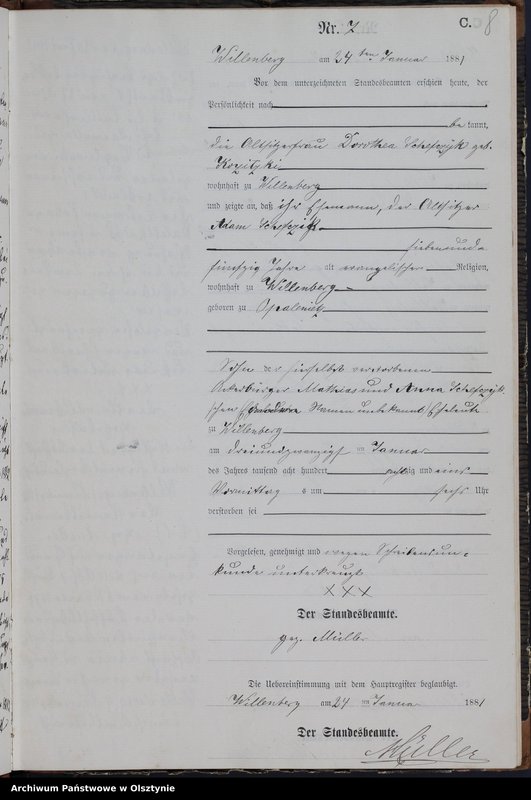 Nr. 7
C. 8
Willenberg am 24 ten Januar 1881
Vor dem unterzeichneten Standesbeamten erschien heute, der
Persönlichkeit nach
be kannt,
die Altsitzerfrau Dorothea geb.
wohnhaft zu Willenberg
und zeigte an, daß ihr Ehemann, der Altsitzer
Adam
siebenund-
fünfzig Jahre alt evangelischer Religion,
wohnhaft zu Willenberg
geboren zu Opaleniec
Sohn der verstorbenen
Ackerbürger Mathias und Anna
schen Namen unbekannt Eheleute
zu Willenberg
am dreiundzwanzigst en Januar
des Jahres tausend acht hundert achtzig und eins
Vormittag s um sechs Uhr
verstorben sei
Vorgelesen, genehmigt und wegen Schreibensun-
kunde unterkreuzt
X X X
Der Standesbeamte.
gez. Müller
Die Uebereinstimmung mit dem Hauptregister beglaubigt.
Willenberg am 24 ten Januar 1881
Der Standesbeamte.
Müller
Archiwum Państwowe w Olsztynie